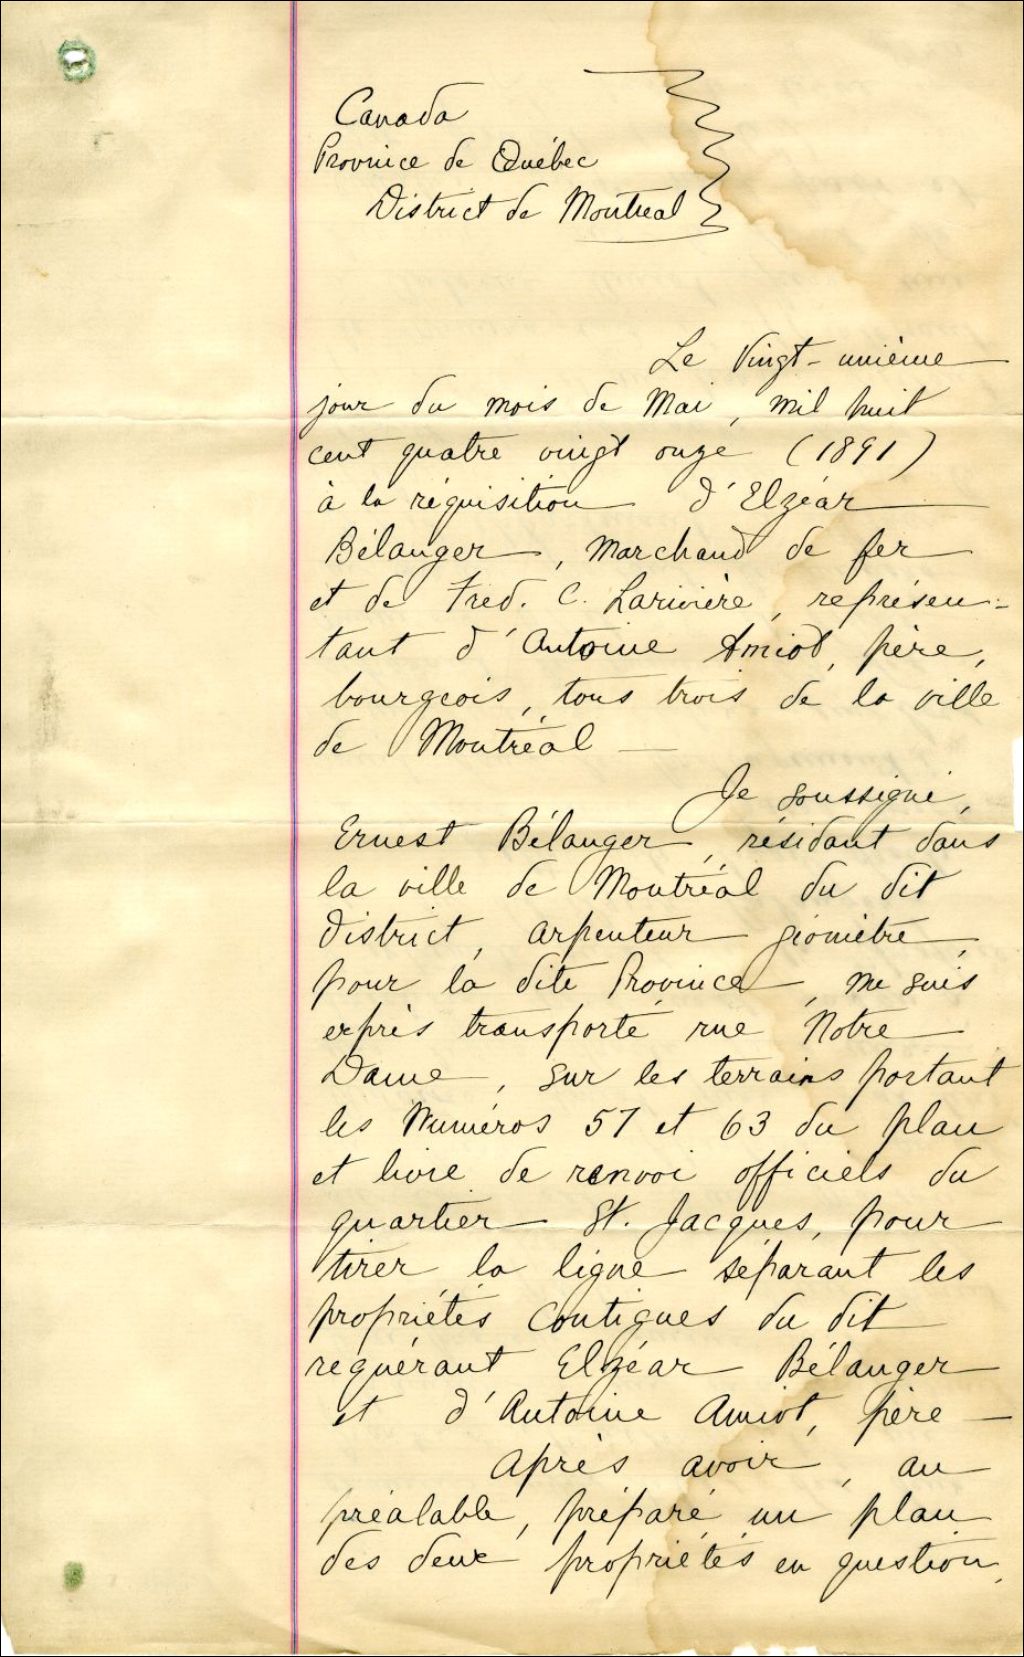 Canada
Province de Québec
District de Montréal
Le Vingt-unième
jour du mois de Mai, mil huit
cent quatre vingt onze (1891)
à la réquisition d'Elzéar
Bélanger, Marchand de fer
et de Fred. C. Larivière, représen-
tant d'Antoine Amiot, père,
bourgeois, tous trois de la ville
de Montréal
Je soussigné,
Ernest Bélanger, résidant dans
la ville de Montréal du dit
District, arpenteur géomètre,
pour la dite Province, me suis
exprès transporté rue Notre
Dame, sur les terrains portant
les Numéros 57 et 63 du plan
et livre de renvoi officiels du
quartier St. Jacques, pour
tirer la ligne séparant les
propriétés contigues du dit
requérant Elzéar Bélanger
et d'Antoine Amiot, père
Après avoir, au
préalable, préparé un plan
des deux propriétés en question,